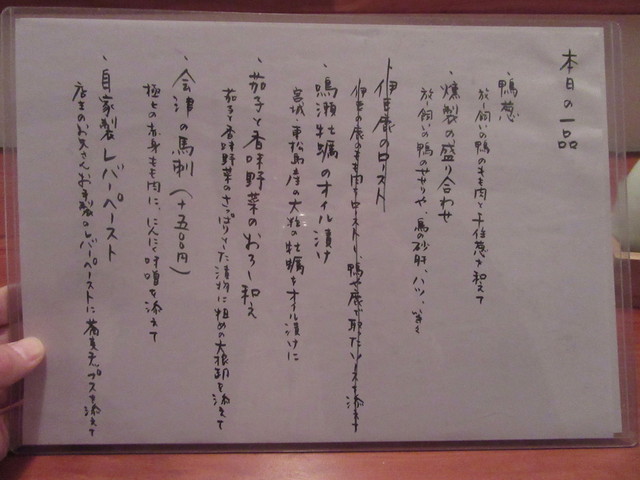 本日の一品
・鴨葱
放し飼いの鴨のもも肉と千住葱を和えて
・燻製の盛り合わせ
放し飼いの鴨のササミや、鳥の砂肝、ハツ、等を
・伊豆鹿のロースト
伊豆の鹿のもも肉をロースト、鴨や鹿で取ったソースを添えて
・鳴瀬牡蠣のオイル漬け
宮城・東松島産の大粒の牡蠣をオイル漬けに
・茄子と香味野菜のおろし和え
茄子と香味野菜のさっぱりとした漬物に粗めの大根卸を添えて
・会津の馬刺（+五〇〇円）
極上の赤身もも肉に、にんにく味噌を添えて
・自家製レバーペースト
店主のお父さんお手製のレバーペーストに蕎麦チップスを添えて